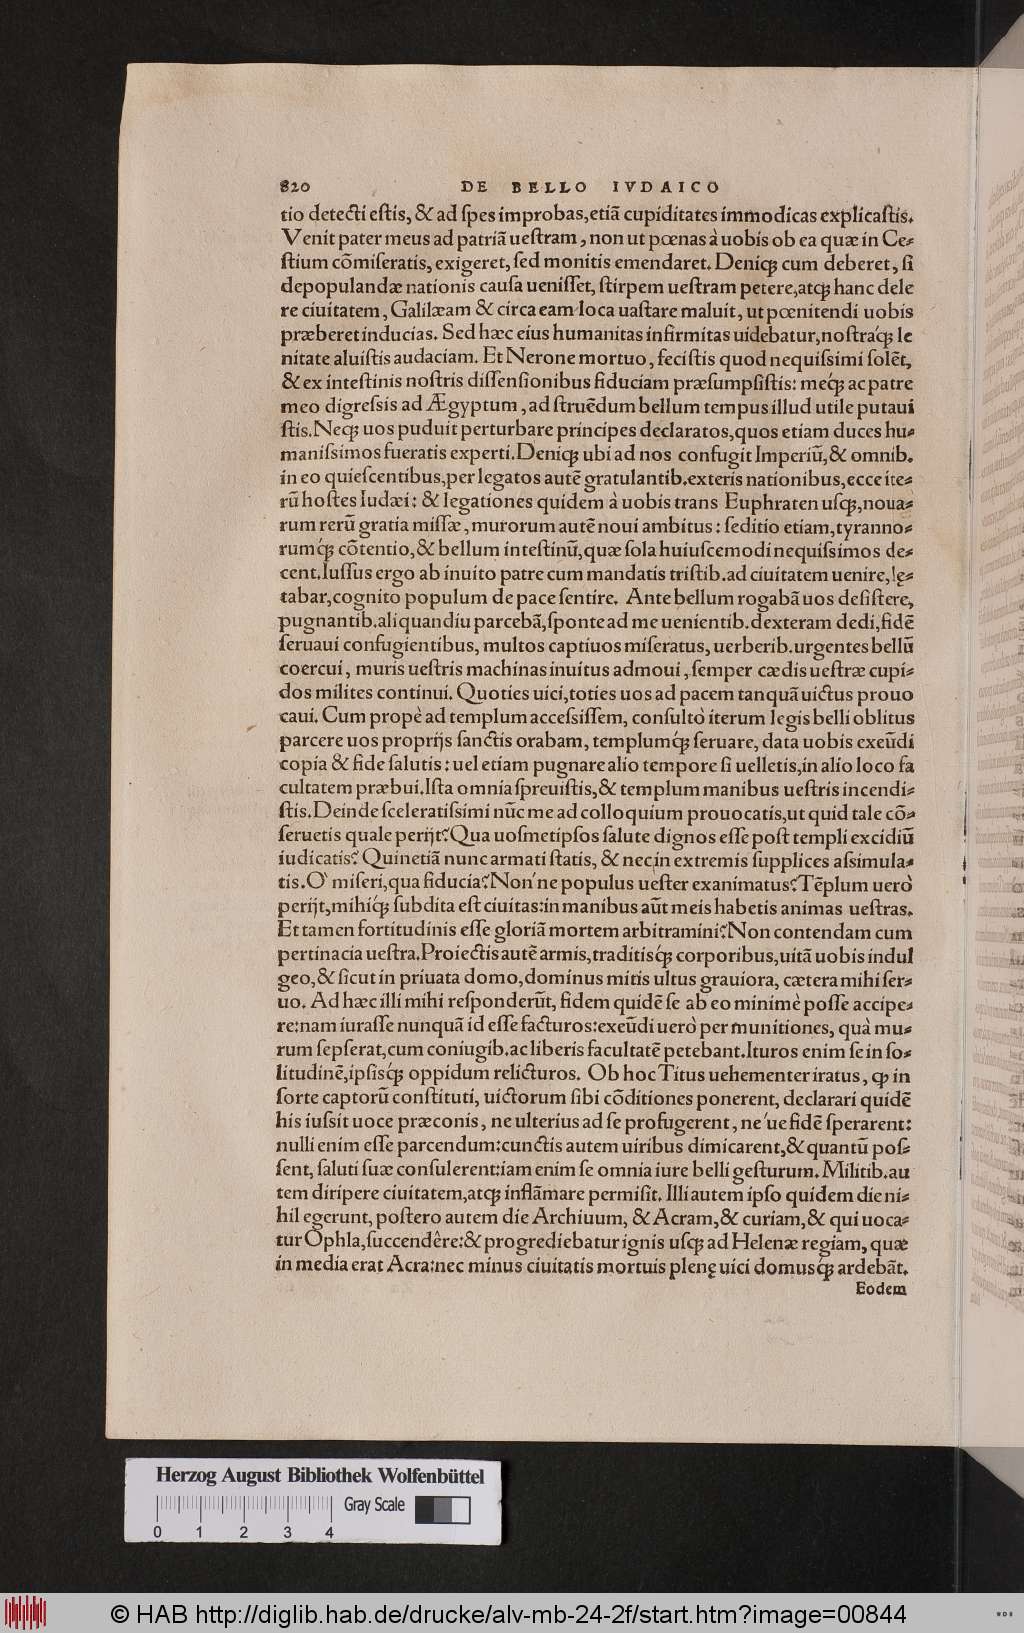 820 DE BELLO IVDAICO
tio detecti eſtis, & ad ſpes improbas, etiã cupiditates immodicas explicaſtis.
Venit pater meus ad patriã ueſtram, non ut pœnas à uobis ob ea quæ in Ce-
ſtium cõmiſeratis, exigeret, ſed monitis emendaret. Deniqꝫ cum deberet, ſi
depopulandæ nationis cauſa ueniſſet, ſtirpem ueſtram petere, atqꝫ hanc dele
re ciuitatem, Galilæam & circa eam loca uaſtare maluit, ut pœnitendi uobis
præberet inducias. Sed hæc eius humanitas infirmitas uidebatur, noſtraq́ꝫ le
nitate aluiſtis audaciam. Et Nerone mortuo, feciſtis quod nequiſsimi ſolẽt,
& ex inteſtinis noſtris diſſenſionibus fiduciam præſumpſiſtis: meq́ꝫ ac patre
meo digreſsis ad Ægyptum, ad ſtruẽdum bellum tempus illud utile putaui
ſtis. Neqꝫ uos puduit perturbare principes declaratos, quos etiam duces hu-
maniſsimos fueratis experti. Deniqꝫ ubi ad nos confugit Imperiũ, & omnib.
in eo quieſcentibus, per legatos autẽ gratulantib. exteris nationibus, ecce ite-
rũ hoſtes Iudæi: & legationes quidem à uobis trans Euphraten uſqꝫ, noua-
rum rerũ gratia miſſæ, murorum autẽ noui ambitus: ſeditio etiam, tyranno-
rumq́ꝫ cõtentio, & bellum inteſtinũ, quæ ſola huiuſcemodi nequiſsimos de-
cent. Iuſſus ergo ab inuito patre cum mandatis triſtib. ad ciuitatem uenire, lę-
tabar, cognito populum de pace ſentire. Ante bellum rogabã uos deſiſtere,
pugnantib. aliquandiu parcebã, ſponte ad me uenientib. dexteram dedi, fidẽ
ſeruaui confugientibus, multos captiuos miſeratus, uerberib. urgentes bellũ
coercui, muris ueſtris machinas inuitus admoui, ſemper cædis ueſtræ cupi-
dos milites continui. Quoties uici, toties uos ad pacem tanquã uictus prouo
caui. Cum propè ad templum acceſsiſſem, conſultò iterum legis belli oblitus
parcere uos proprijs ſanctis orabam, templumq́ꝫ ſeruare, data uobis exeũdi
copia & fide ſalutis: uel etiam pugnare alio tempore ſi uelletis, in alio loco fa
cultatem præbui. Iſta omnia ſpreuiſtis, & templum manibus ueſtris incendi-
ſtis. Deinde ſceleratiſsimi nũc me ad colloquium prouocatis, ut quid tale cõ-
ſeruetis quale perijt? Qua uoſmetipſos ſalute dignos eſſe poſt templi excidiũ
iudicatis? Quinetiã nunc armati ſtatis, & nec in extremis ſupplices aſsimula-
tis. O' miſeri, qua fiducia? Non'ne populus ueſter exanimatus? Tẽplum uerò
perijt, mihiq́ꝫ ſubdita eſt ciuitas: in manibus aũt meis habetis animas ueſtras.
Et tamen fortitudinis eſſe gloriã mortem arbitramini? Non contendam cum
pertinacia ueſtra. Proiectis autẽ armis, traditisq́ꝫ corporibus, uitã uobis indul
geo, & ſicut in priuata domo, dominus mitis ultus grauiora, cætera mihi ſer-
uo. Ad hæc illi mihi reſponderũt, fidem quidẽ ſe ab eo minimè poſſe accipe-
re: nam iuraſſe nunquã id eſſe facturos: exeũdi uerò per munitiones, quà mu-
rum ſepſerat, cum coniugib. ac liberis facultatẽ petebant. Ituros enim ſe in ſo-
litudinẽ, ipſisq́ꝫ oppidum relicturos. Ob hoc Titus uehementer iratus, ꝙ in
ſorte captorũ conſtituti, uictorum ſibi cõditiones ponerent, declarari quidẽ
his iuſsit uoce præconis, ne ulterius ad ſe profugerent, ne'ue fidẽ ſperarent:
nulli enim eſſe parcendum: cunctis autem uiribus dimicarent, & quantũ poſ-
ſent, ſaluti ſuæ conſulerent: iam enim ſe omnia iure belli geſturum. Militib. au
tem diripere ciuitatem, atqꝫ inflãmare permiſit. Illi autem ipſo quidem die ni-
hil egerunt, poſtero autem die Archiuum, & Acram, & curiam, & qui uoca-
tur Ophla, ſuccendêre: & progrediebatur ignis uſqꝫ ad Helenæ regiam, quæ
in media erat Acra: nec minus ciuitatis mortuis plenę uici domusq́ꝫ ardebãt.
Eodem
Herzog August Bibliothek Wolfenbüttel
Gray Scale
0 1 2 3 4
© HAB http://diglib.hab.de/drucke/alv-mb-24-2f/start.htm?image=00844